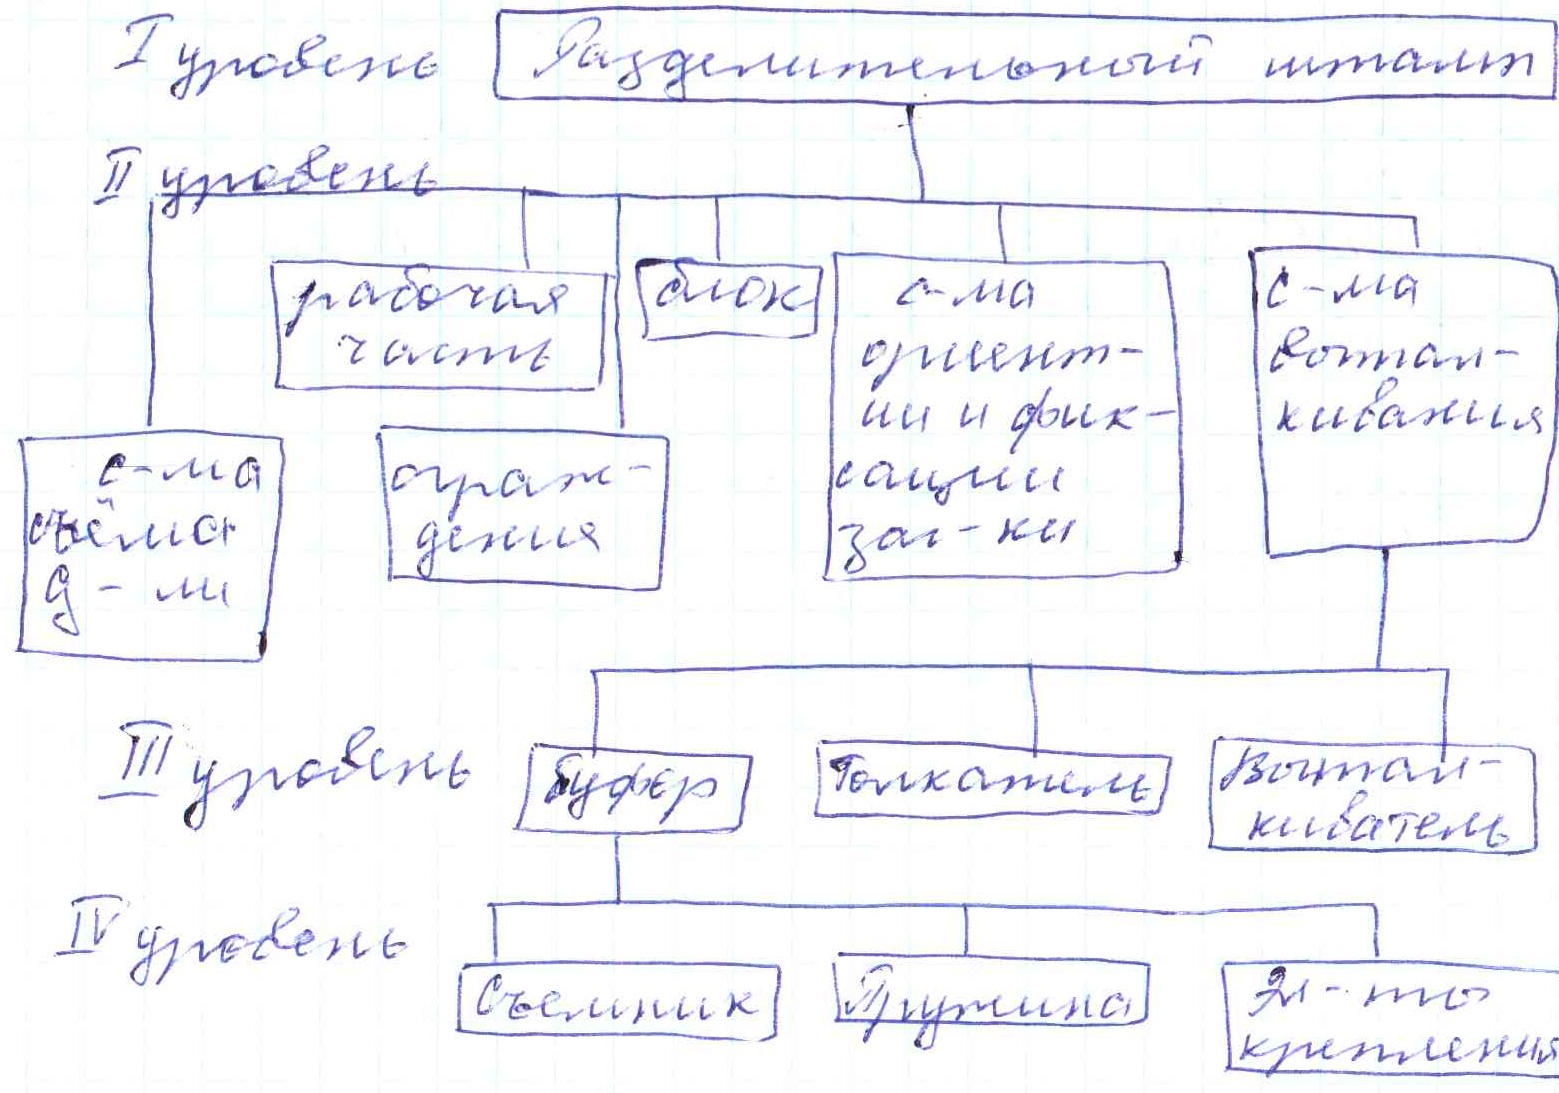 I уровень Разделительный штамп
II уровень
рабочая
часть
блок
с-ма
ориент-
ии и фик-
сации
заг-ки
с-ма
вытал-
кивания
с-ма
съёма
д-ли
ограж-
дения
III уровень
буфер
Толкатель
Вытал-
киватель
IV уровень
Съемник
Пружина
Эл-ты
крепления